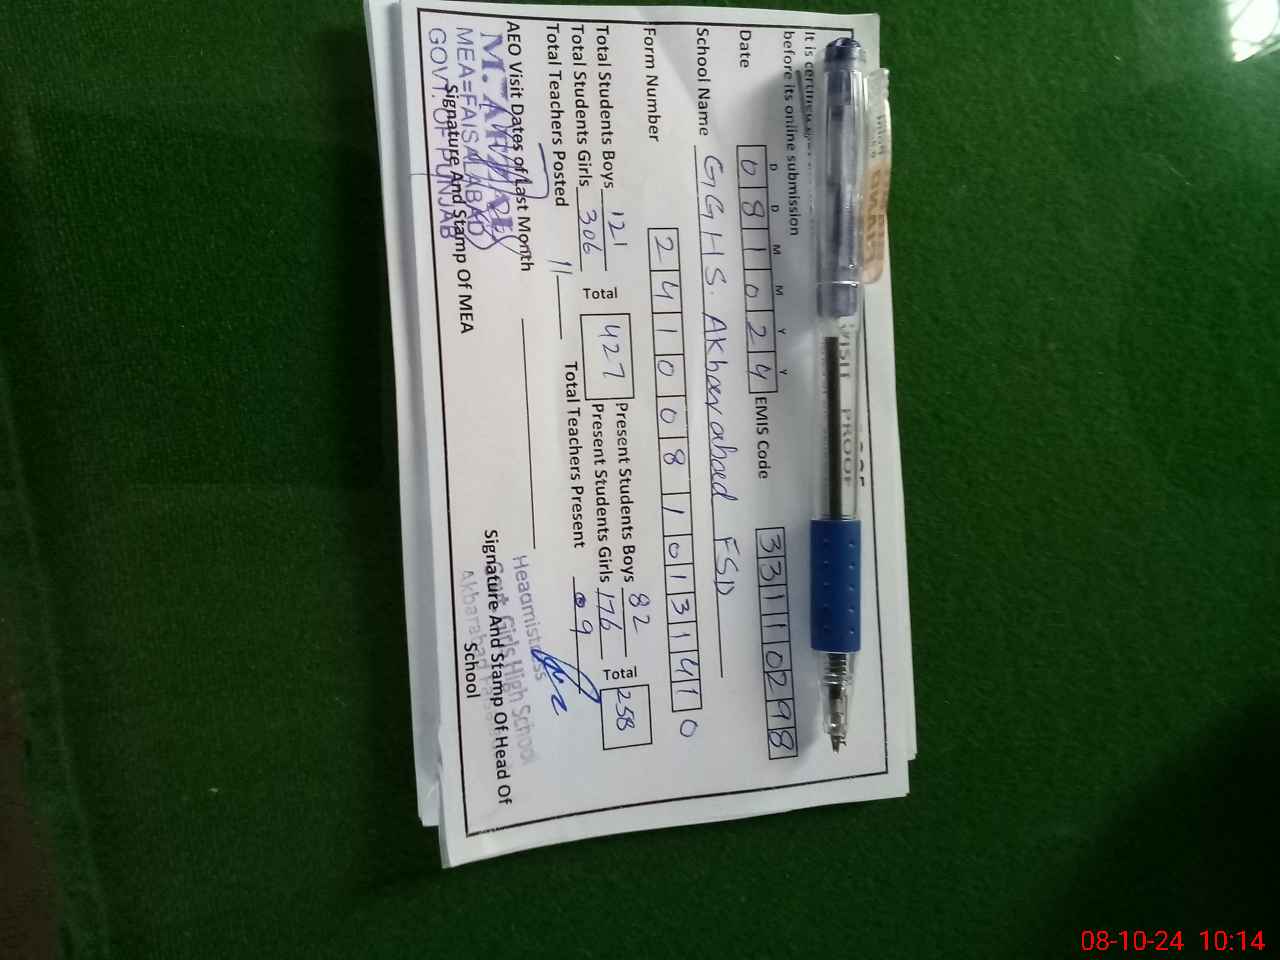 VISIT PROOF
It is certified
before its online submission
D D M M Y Y
Date 0 8 1 0 2 4 EMIS Code 3 3 1 1 0 2 9 8
School Name GGHS. Akbarabad FSD
Form Number 2 4 1 0 0 8 1 0 1 3 1 4 1 0
Total Students Boys 121 Total 427 Present Students Boys 82 Total 258
Total Students Girls 306 Present Students Girls 176
Total Teachers Posted 11 Total Teachers Present 09
AEO Visit Dates of Last Month
Headmistress
Govt. Girls High School
Akbarabad
MEA=FAISALABAD
GOVT. OF PUNJAB
Signature And Stamp Of MEA
Signature And Stamp Of Head Of
School
08-10-24 10:14